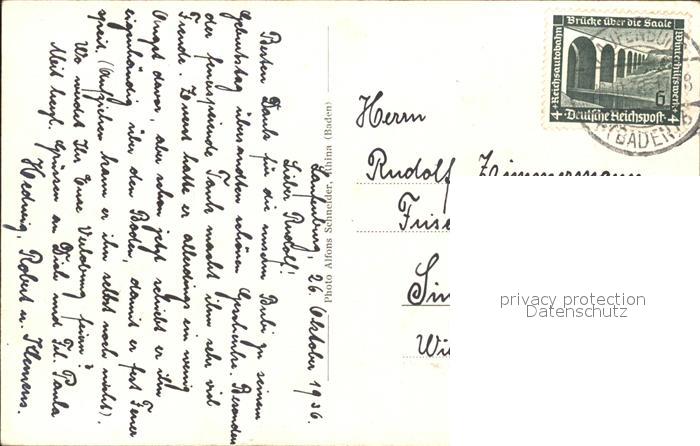 Laufenburg, 26. Oktober 1936.
Lieber Rudolf!
Besten Dank für die unserem Bubi zu seinem
Geburtstag übersandten schönen Geschenke. Besonders
der feuerspeiende Tank macht ihm sehr viel
Freude. Zuerst hatte er allerdings ein wenig
Angst davor, aber schon jetzt schiebt er ihn
eigenhändig über den Boden, damit er fest Feuer
speit (Aufziehen kann er ihn selbst noch nicht).
Wo werdet Ihr Eure Verlobung feiern?
Mit herzl. Grüssen an Dich und Frl. Paula
Hedwig, Robert u. Klemens.
Photo Alfons Schneider, Rhina (Baden)
Herrn
Rudolf Zimmermann
Brücke über die Saale
Reichsautobahn
Winterhilfswerk
6
4 Deutsche Reichspost 4
(BADEN)
privacy protection
Datenschutz